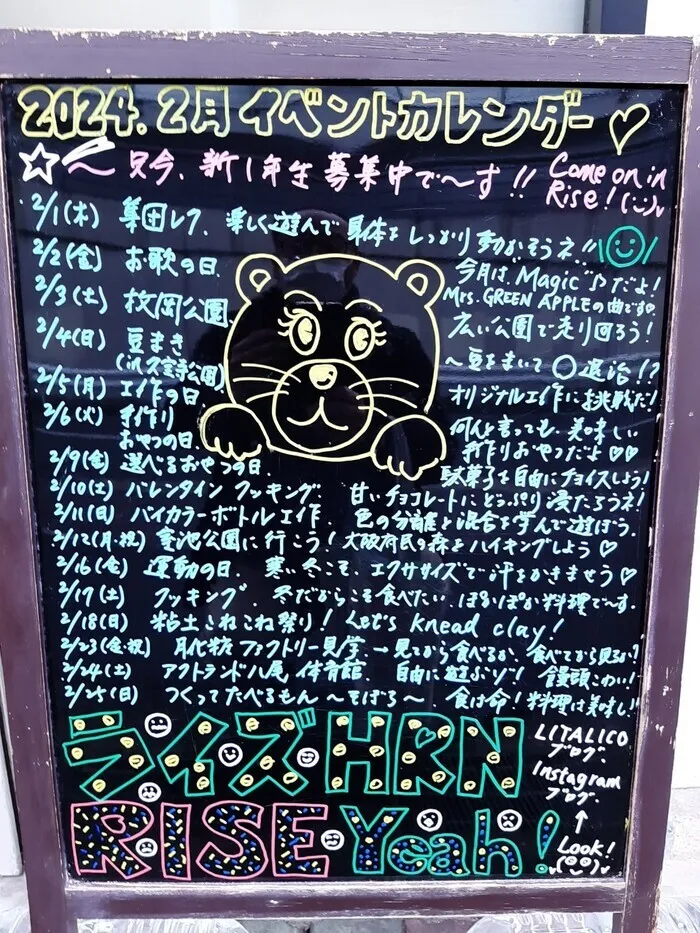 2024.2月イベントカレンダー♡
☆〜只今、新1年生募集中で〜す!! Come on in Rise!
2/1(木) 集団レク. 楽しく遊んで身体をしっかり動かそうネ!!
2/2(金) お歌の日. 今月は"Magic"だよ! Mrs. GREEN APPLEの曲です。
2/3(土) 枚岡公園. 広い公園で走り回ろう!
2/4(日) 豆まき (久宝寺公園) 〜豆をまいて〇退治!?
2/5(月) 工作の日 オリジナル工作に挑戦だ!
2/6(火) 手作りおやつの日. 何と言っても、美味しい手作りおやつだよ♡♡
2/9(金) 選べるおやつの日. 駄菓子を自由にチョイスしよう!
2/10(土) バレンタインクッキング. 甘いチョコレートにどっぷり浸たろうネ!
2/11(日) バイカラーボトル工作. 色の分離と混合を学んで遊ぼう.
2/12(月.祝) 公園に行こう! 大阪府民の森をハイキングしよう♡
2/16(金) 運動の日. 寒い冬こそ、エクササイズで汗をかきませう♡
2/17(土) クッキング. 冬だからこそ食べたい、ぽかぽか料理で〜す.
2/18(日) 粘土こねこね祭り! Let's knead clay!
2/23(金.祝) 月化粧ファクトリー見学. →見てから食べるか、食べてから見るか?
2/24(土) アクトランド八尾 体育館. 自由に遊ぶゾ! 饅頭こわい!
2/25(日) つくってたべるもん〜そぼろ〜 食は命! 料理は美味し!!
ライズHRN
LITALICO
ブログ.
Instagram
ブログ.
↑
Look!
RISE Yeah!